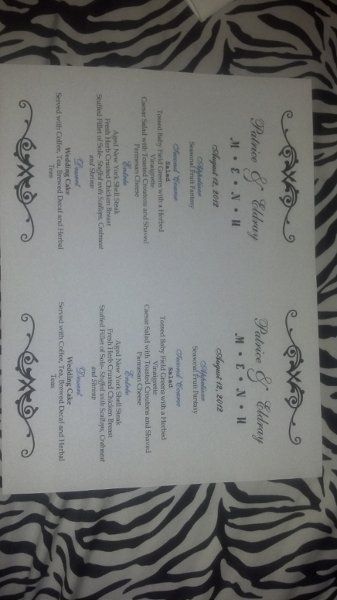 Patrice & Eldray
M • E • N • U
August 12, 2012
Appetizer
Seasonal Fruit Fantasy
Second Course
Salad
Tossed Baby Field Greens with a Herbed
Vinaigrette
Caesar Salad with Toasted Croutons and Shaved
Parmesan Cheese
Entrée
Aged New York Shell Steak
Fresh Herb Crusted Chicken Breast
Stuffed Fillet of Sole- Stuffed with Scallops, Crabmeat
and Shrimp
Dessert
Wedding Cake
Served with Coffee, Tea, Brewed Decaf and Herbal
Teas
Patrice & Eldray
M • E • N • U
August 12, 2012
Appetizer
Seasonal Fruit Fantasy
Second Course
Salad
Tossed Baby Field Greens with a Herbed
Vinaigrette
Caesar Salad with Toasted Croutons and Shaved
Parmesan Cheese
Entrée
Aged New York Shell Steak
Fresh Herb Crusted Chicken Breast
Stuffed Fillet of Sole- Stuffed with Scallops, Crabmeat
and Shrimp
Dessert
Wedding Cake
Served with Coffee, Tea, Brewed Decaf and Herbal
Teas